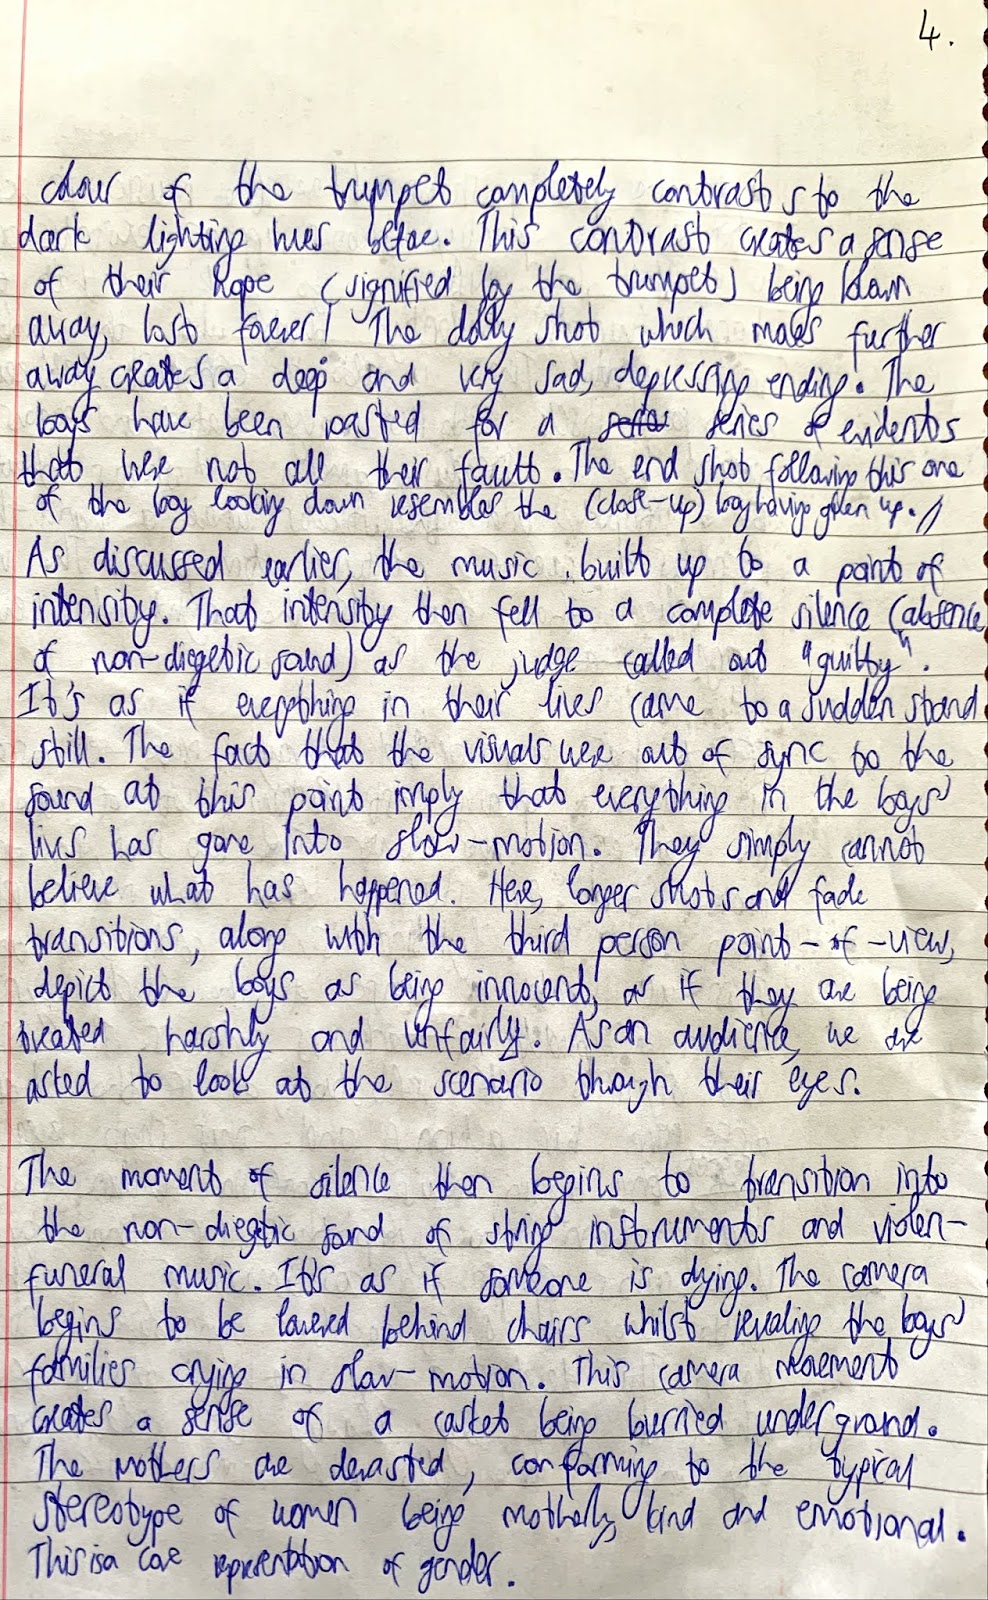 4.
colour of the trumpet completely contrasts to the
dark lighting hues before. This contrast creates a sense
of their hope (signified by the trumpet) being blown
away, lost forever! The dolly shot which moves further
away creates a deep and very sad, depressing ending. The
boys have been roasted for a series of evidents
that were not all their fault. The end shot following this one
of the boy looking down resembles the (close-up) boy having given up. //
As discussed earlier, the music built up to a point of
intensity. That intensity then fell to a complete silence (absence
of non-diegetic sound) as the judge called out "guilty".
It's as if everything in their lives came to a sudden stand
still. The fact that the visuals were out of sync to the
sound at this point imply that everything in the boys'
lives has gone into slow-motion. They simply cannot
believe what has happened. Here, longer shots and fade
transitions, along with the third person point-of-view,
depict the boys as being innocent, as if they are being
treated harshly and unfairly. As an audience, we are
asked to look at the scenario through their eyes.
The moment of silence then begins to transition into
the non-diegetic sound of string instruments and violen-
funeral music. It's as if someone is dying. The camera
begins to be lowered behind chairs whilst revealing the boys'
families crying in slow-motion. This camera movement
creates a sense of a casket being burried underground.
The mothers are devasted, conforming to the typical
stereotype of women being motherly, kind and emotional.
This is a core representation of gender.